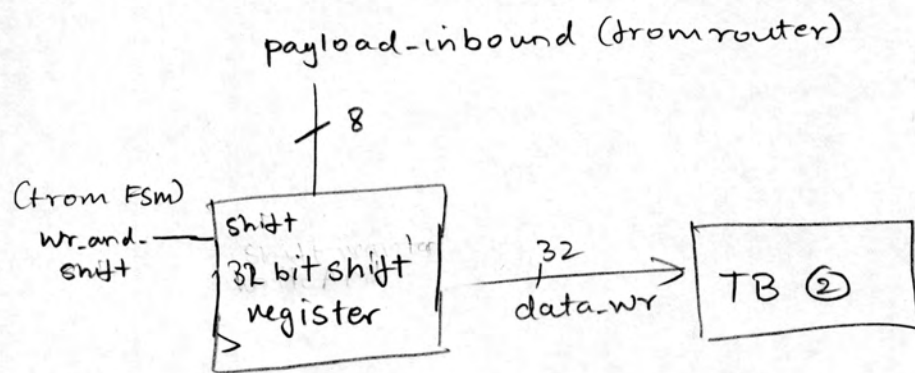 payload-inbound (from router)
8
(from FSM)
wr_and_
shift
shift
32 bit shift
register
32
data_wr
TB ②